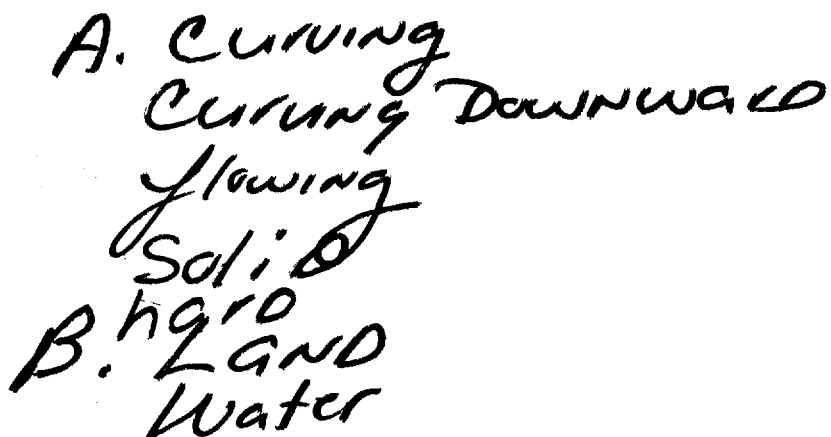 A. Curving
Curving Downward
flowing
Solid
hard
B. Land
Water